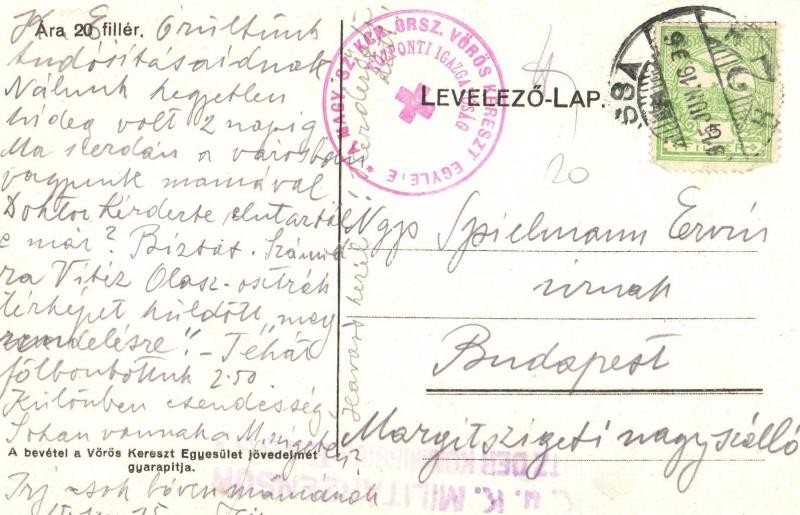 Ára 20 fillér.
K. E. Örültünk
tudósitásaidnak
Nálunk
hideg volt 2 napig
Ma szerdán a városban
vagyunk mamával
Doktor kérdezte elutaztál
e már? Biztat. Számod
ra Vitéz Olasz-osztrák
térképet küldött „meg
rendelésre". – Tehát
fölbontottuk 2.50.
Különben csendesség,
Sokan vannak a M. szigeten?
A bevétel a Vörös Kereszt Egyesület jövedelmét
gyarapitja.
Irj sok bőven mamának
A MAGY. SZ. KOR. ORSZ. VÖRÖS KERESZT EGYLETE
KÖZPONTI IGAZGATÓSÁG
LEVELEZŐ-LAP.
20
915 JUN 16
Ngs Spielmann Ervin
úrnak
Budapest
Margitszigeti nagyszálló
K. u. K. MILIT. ZENSUR